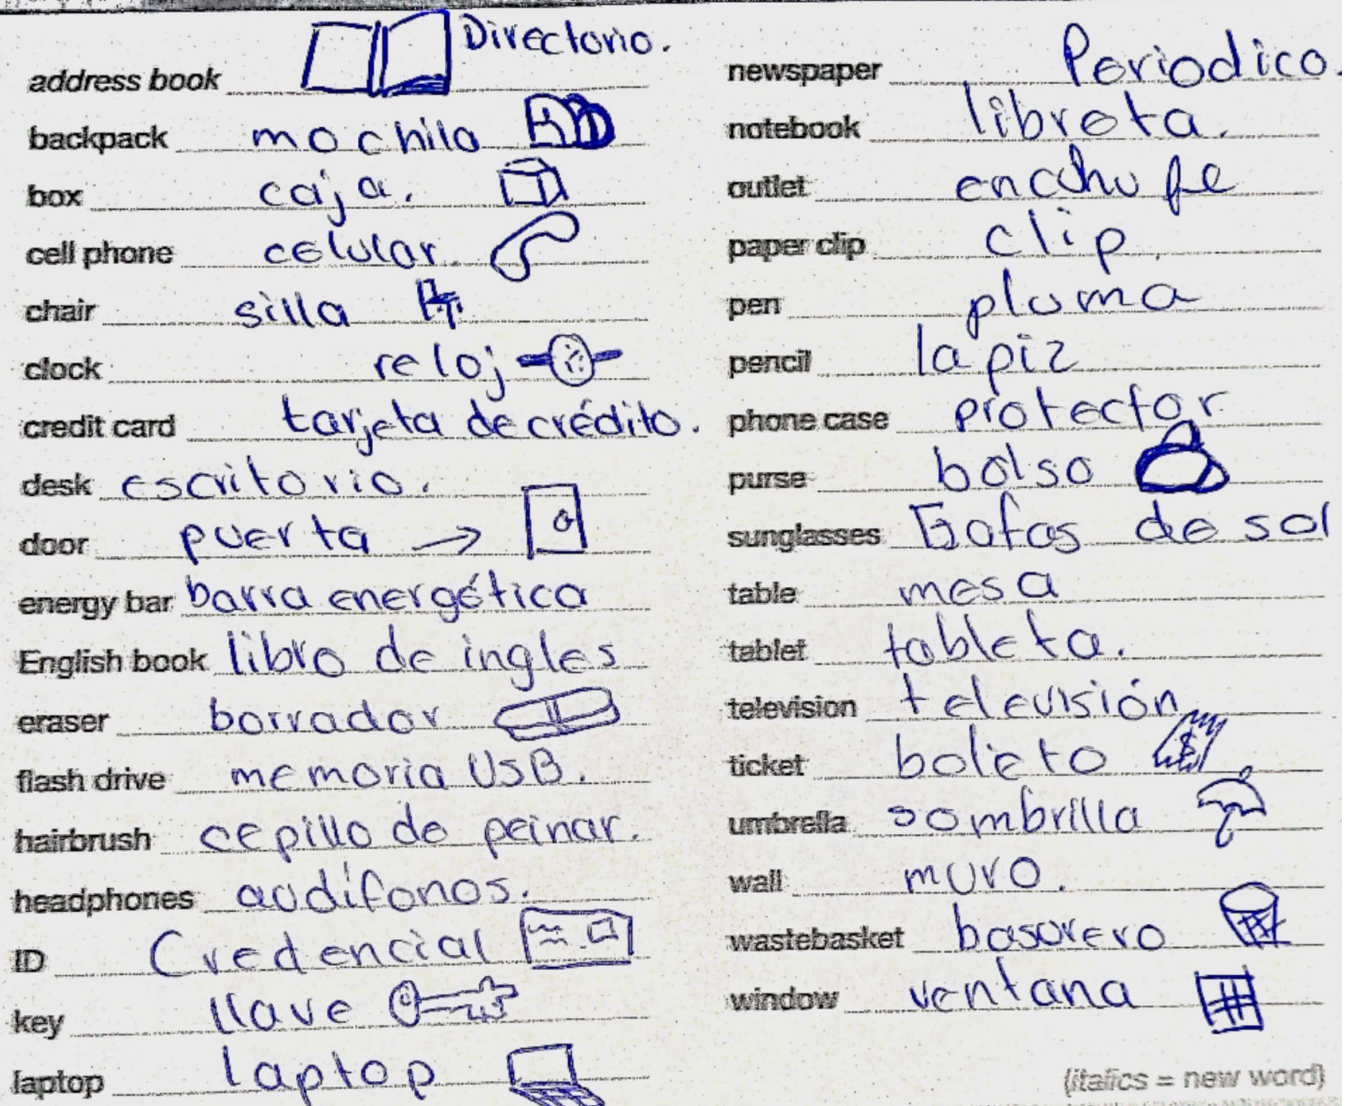 address book Directorio.
backpack mochila
box caja.
cell phone celular.
chair silla
clock reloj
credit card tarjeta de crédito.
desk escritorio.
door puerta →
energy bar barra energética
English book libro de ingles
eraser borrador
flash drive memoria USB.
hairbrush cepillo de peinar.
headphones audífonos.
ID Credencial
key llave
laptop laptop
newspaper Periodico.
notebook libreta.
outlet encchufe
paper clip clip.
pen pluma
pencil lapiz
phone case protector
purse bolso
sunglasses Gafas de sol
table mesa
tablet tableta.
television televisión
ticket boleto $
umbrella sombrilla
wall muro.
wastebasket basorero
window ventana
(italics = new word)